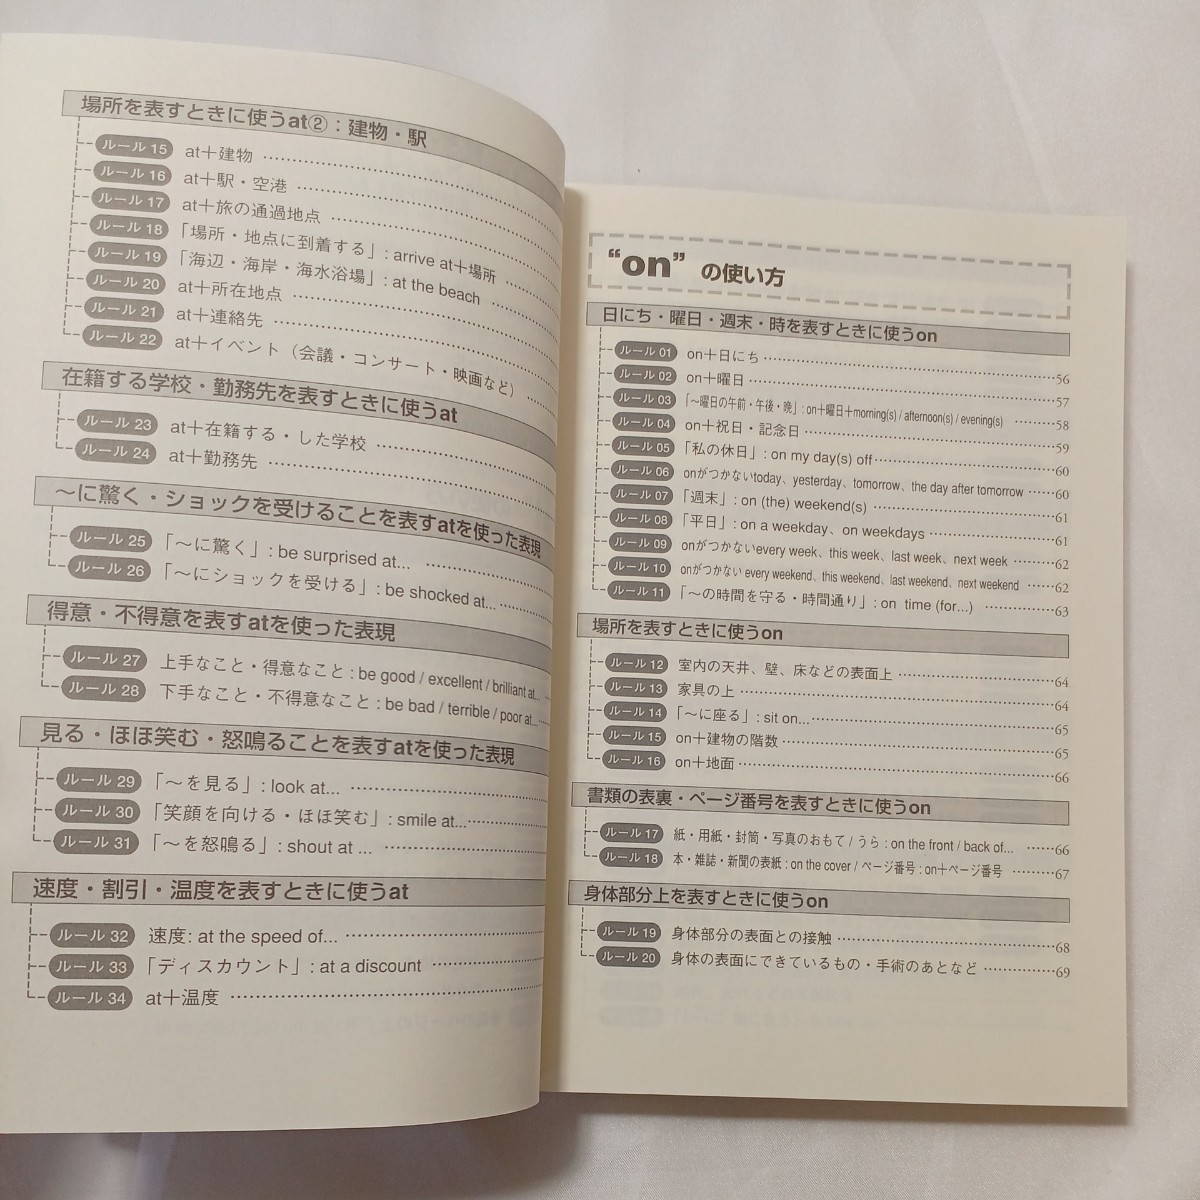 場所を表すときに使うat②：建物・駅
ルール 15 at＋建物
ルール 16 at＋駅・空港
ルール 17 at＋旅の通過地点
ルール 18 「場所・地点に到着する」: arrive at＋場所
ルール 19 「海辺・海岸・海水浴場」: at the beach
ルール 20 at＋所在地点
ルール 21 at＋連絡先
ルール 22 at＋イベント（会議・コンサート・映画など）
在籍する学校・勤務先を表すときに使うat
ルール 23 at＋在籍する・した学校
ルール 24 at＋勤務先
～に驚く・ショックを受けることを表すatを使った表現
ルール 25 「～に驚く」: be surprised at...
ルール 26 「～にショックを受ける」: be shocked at...
得意・不得意を表すatを使った表現
ルール 27 上手なこと・得意なこと : be good / excellent / brilliant at...
ルール 28 下手なこと・不得意なこと : be bad / terrible / poor at...
見る・ほほ笑む・怒鳴ることを表すatを使った表現
ルール 29 「～を見る」: look at...
ルール 30 「笑顔を向ける・ほほ笑む」: smile at...
ルール 31 「～を怒鳴る」: shout at ...
速度・割引・温度を表すときに使うat
ルール 32 速度: at the speed of...
ルール 33 「ディスカウント」: at a discount
ルール 34 at＋温度
“on” の使い方
日にち・曜日・週末・時を表すときに使うon
ルール 01 on＋日にち 56
ルール 02 on＋曜日 57
ルール 03 「～曜日の午前・午後・晩」: on＋曜日＋morning(s) / afternoon(s) / evening(s) 58
ルール 04 on＋祝日・記念日 59
ルール 05 「私の休日」: on my day(s) off 60
ルール 06 onがつかないtoday、yesterday、tomorrow、the day after tomorrow 60
ルール 07 「週末」: on (the) weekend(s) 61
ルール 08 「平日」: on a weekday、on weekdays 61
ルール 09 onがつかないevery week、this week、last week、next week 62
ルール 10 onがつかない every weekend、this weekend、last weekend、next weekend 62
ルール 11 「～の時間を守る・時間通り」: on time (for...) 63
場所を表すときに使うon
ルール 12 室内の天井、壁、床などの表面上 64
ルール 13 家具の上 64
ルール 14 「～に座る」: sit on... 65
ルール 15 on＋建物の階数 65
ルール 16 on＋地面 66
書類の表裏・ページ番号を表すときに使うon
ルール 17 紙・用紙・封筒・写真のおもて / うら : on the front / back of... 66
ルール 18 本・雑誌・新聞の表紙 : on the cover / ページ番号 : on＋ページ番号 67
身体部分上を表すときに使うon
ルール 19 身体部分の表面との接触 68
ルール 20 身体の表面にできているもの・手術のあとなど 69